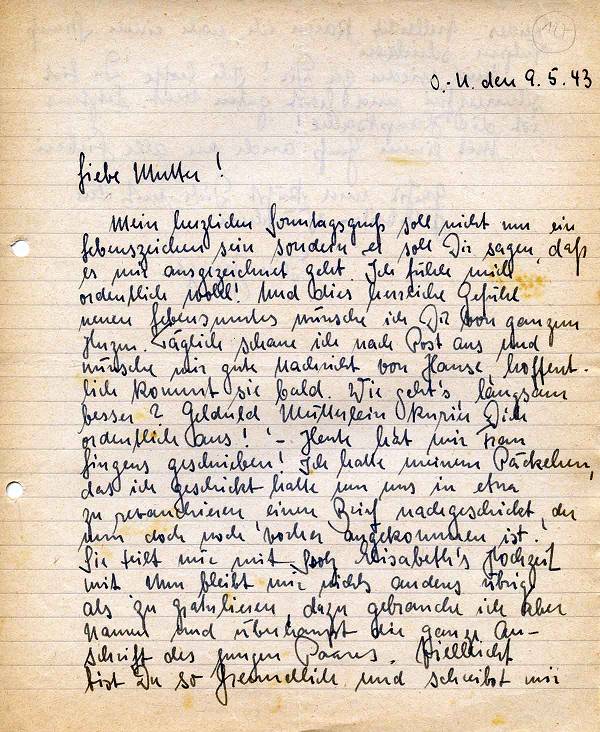 147
O.-U. den 9.5.43
Liebe Mutter!
Mein herzlicher Sonntagsgruß soll nicht nur ein
Lebenszeichen sein sondern es soll Dir sagen, daß
es mir ausgezeichnet geht. Ich fühle mich
ordentlich wohl! Und dies herrliche Gefühl
neuen Lebensmutes wünsche ich Dir von ganzem
Herzen. Täglich schaue ich nach Post aus und
wünsche mir gute Nachricht von Hause, hoffent-
lich kommt sie bald. Wie geht's, langsam
besser? Geduld Mütterlein kurier Dich
ordentlich aus! – Heute hat mir Frau
Lingens geschrieben! Ich hatte meinem Päckchen,
das ich geschickt hatte um uns in etwa
zu revanchieren einen Brief nachgeschickt, der
nun doch noch vorher angekommen ist.
Sie teilt mir mit Elisabeth's Hochzeit
mit. Nun bleibt mir nichts anders übrig
als zu gratulieren, dazu gebrauche ich aber
Namen und überhaupt die ganze An-
schrift des jungen Paares. Vielleicht
bist Du so freundlich und schreibst mir